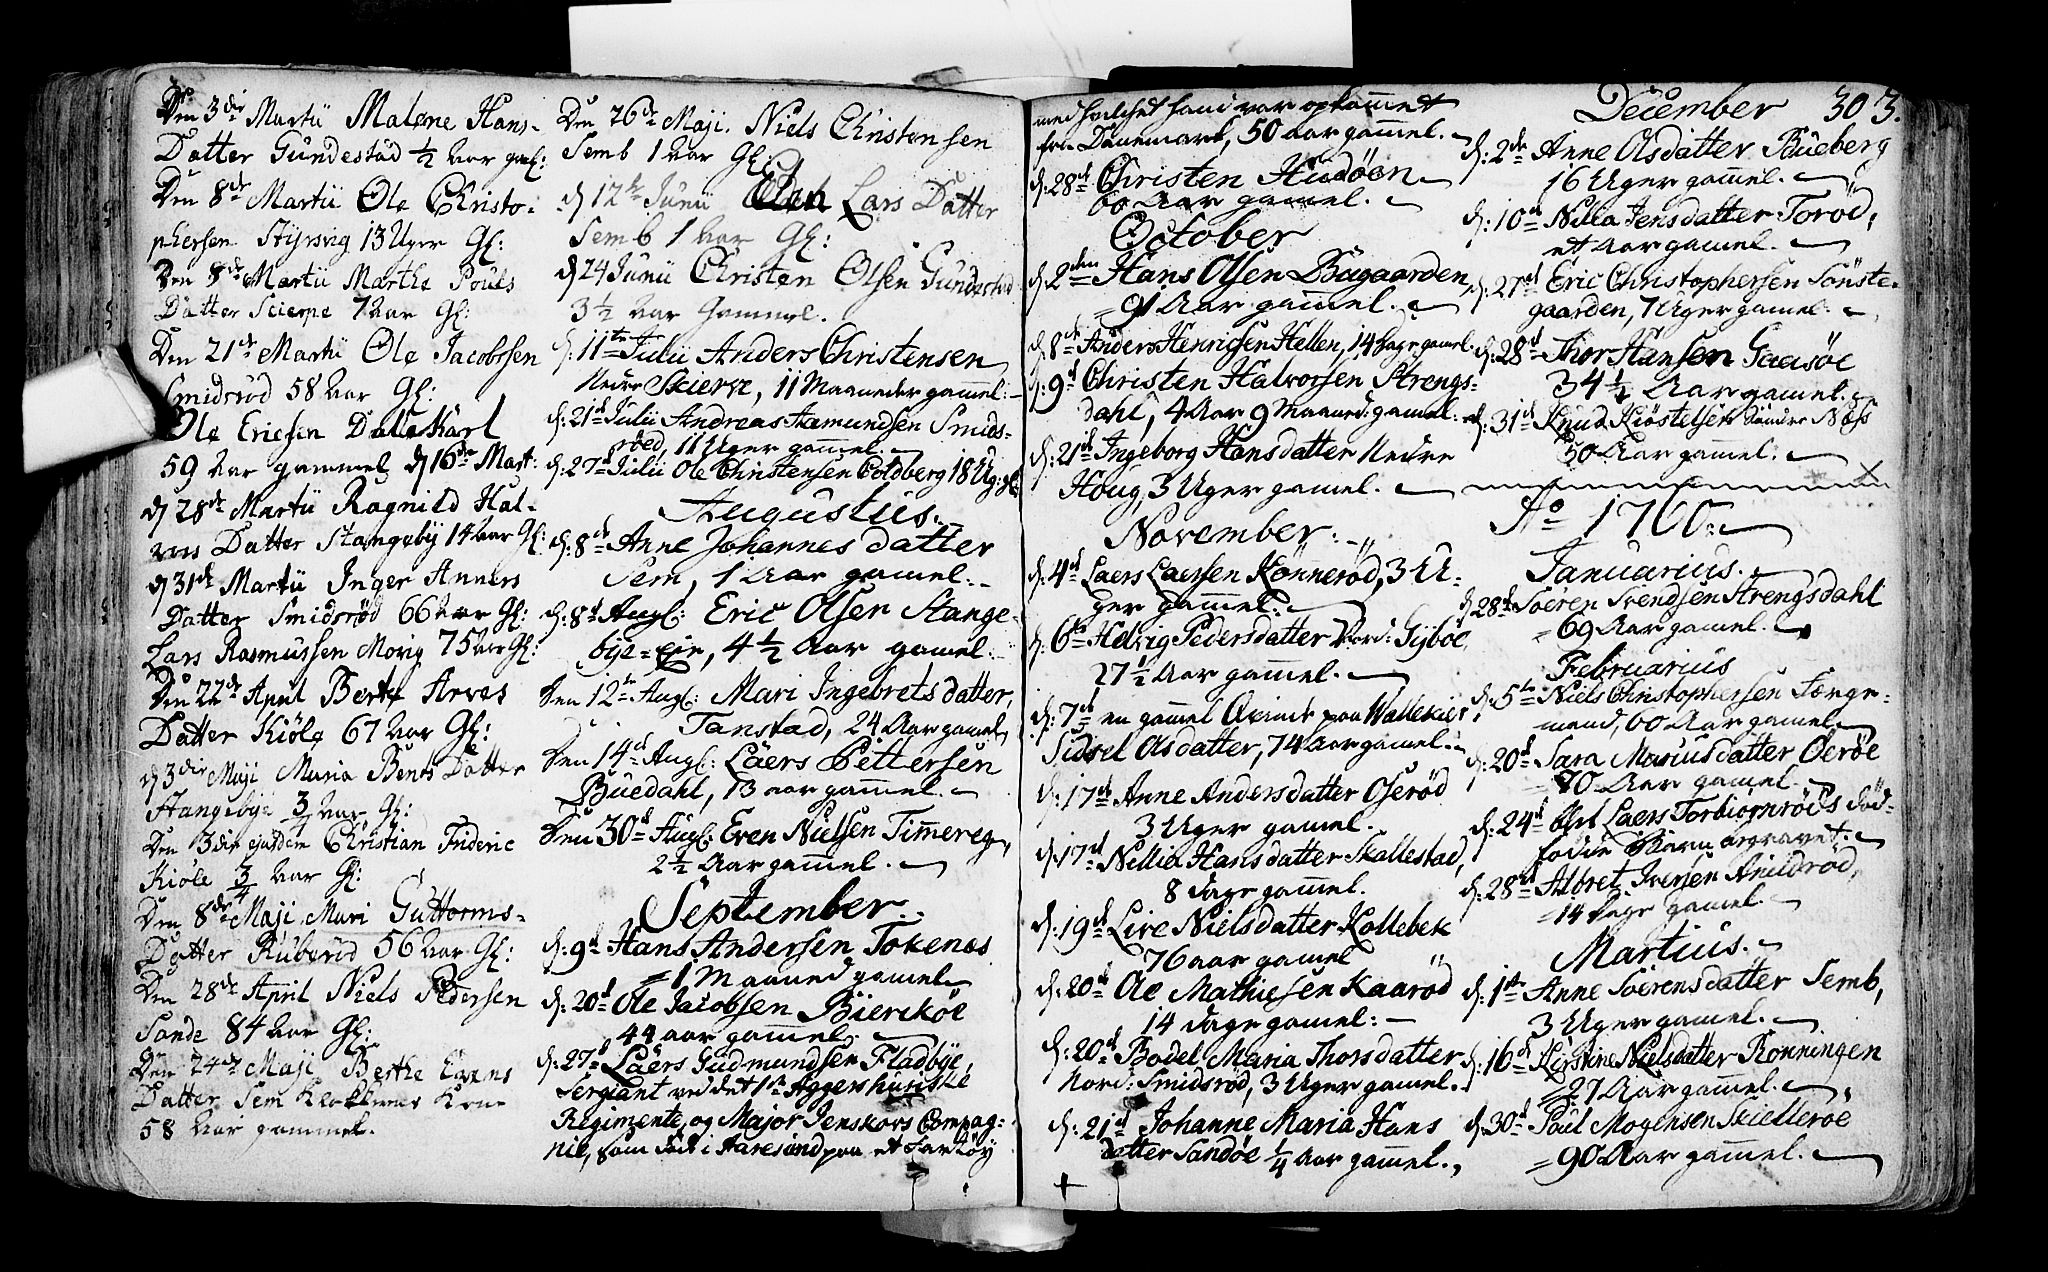 Den 3die Martii Malene Hans-
Datter Gundestad ½ Aar gaml:
Den 8de Martii Ole Christo-
phersen Styrsvig 13 Uger Gl:
Den 8de Martii Marthe Pouls
Datter Scierpe 7 Aar Gl:
Den 21de Martii Ole Jacobssen
Smidsrød 58 Aar Gl:
Ole Ericsen Dalle Karl
59 Aar gammel d 16de Mart:
d 28de Martii Ragnild Hal-
vors Datter Stangeby 14 Aar Gl:
d 31de Martii Inger Anners
Datter Smidsrød 66 Aar Gl:
Lars Rasmussen Movig 75 Aar Gl:
Den 22de April Berte Arves
Datter Kiøle 67 Aar Gl:
d 3die Maji Maria Bents Datter
Stangebye ¾ Aar Gl:
Den 3die ejusdem Christian Frideric
Kiøle ¾ Aar Gl:
Den 8de Maji Mari Guttorms-
Datter Ruberød 56 Aar Gl:
Den 28de April Niels Pedersen
Sande 84 Aar Gl:
Den 24de Maji Berthe Evens
Datter Sem Klokkerens Kone
58 Aar gammel.
Den 26de Maji. Niels Christensen
Semb 1 Aar Gl:
d 12de Junii Lars Datter
Semb 1 Aar Gl:
d 24 Junii Christen Olsen Gundestad
3½ Aar Gammel.
d: 11te Julii Anders Christensen
Nedre Skierve, 11 Maaneder gammel:
d: 21de Julii Andreas Aamundsen Smids-
røed, 11 Uger gammel.
d: 27de Julii Ole Christensen Goldberg 18 Ug: gl:
Augustus.
d: 8de Anne Johannes datter
Sem, 1 Aar gamel.
d: 8d Augl: Eric Olsen Stange-
bye=eie, 4½ Aar gamel.
Den 12te Augl: Mari Ingebrets datter,
Tanstad, 24 Aar gamel,
Den 14d Augl: Läers Pettersen
Buedahl, 73 aar gammel.
Den 30d Augl: Even Nielsen Timereg,
2½ Aar gammel.
September.
d: 9d Hans Andersen Tokenes
= 1 Maaned gamel,
d: 20d Ole Jacobsen Bierckøe
44 aar gammel.
d: 27d Läers Gudmundsen Fladbye,
Sergiant ved det 1te Aggershusiske
Regimente, og Major Jenskovs Compag-
nie, som död i Haresund paa et Fartöy
med hvilket hand var opkommet
fra Danemark, 50 aar gammel.
d: 28d Christen Hudöen
60 Aar gamel.
October
d: 2den Hans Olsen Bugaarden,
= 91 Aar gammel.
d: 8de Anders Henricsen Hellen, 14 Dage gamel.
d: 9d Christen Halvorsen Strengs-
dahl, 4 Aar 9 Maaned: gamel.
d: 21d Ingeborg Hansdatter Nedre
Houg, 3 Uger gamel.
November.
d: 4d Laers Laersen Rönnerød, 3 U-
ger gammel.
d: 6te Helvig Pedersdatter Nord: Gijböe,
27½ Aar gammel.
d: 7d en gammel Qvinde paa Wallekier
Sidsel Olsdatter, 74 Aar gamel.
d: 17d Anne Andersdatter Oserød
3 Uger gamel.
d: 17d Nellia Hansdatter Skallestad,
8 dage gamel.
d: 19d Live Nielsdatter Kollebek
76 aar gamel
d: 20d Ole Mathiesen Kaarød
14 dage gamel:
d: 20d Bodel Maria Thorsdatter
Nord: Smidsrød, 3 Uger gamel.
d: 21d Johanne Maria Hans
datter Sandöe ¼ Aar gammel.
December 303.
d: 2de Anne Olsdatter Bueberg
16 Uger gamel.
d: 10d Nellia Jensdatter Torød,
et Aar gamel.
d: 27d Eric Christophersen Sönste-
gaarden, 7 Uger gamel.
d: 28d Thor Hansen Gaasöe
34½ Aar gamel.
d: 31d Knud Kiöstelsen Söndre Næss
50 Aar gamel.
Ao 1760.
Januarius.
d 28d Soeren Svendsen Strengsdahl
= 69 Aar gamel.
Februarius
d: 5te Niels Christophersen Færge-
mand, 60 Aar gamel.
d: 20d Sara Mariusdatter Oeröe
= 70 Aar gamel
d: 24d blef Laers Torbiörnröds död-
födde Barn begravet.
d: 28d Albret Iversen Arildröd,
= 14 Dage gamel.
Martius.
d: 1ste Anne Soerensdatter Semb,
3 Uger gamel.
d: 16d Kirstine Nielsdatter Rønningen
= 27 Aar gammel.
d: 30d Poul Mogensen Skielleröe
= 90 Aar gammel.